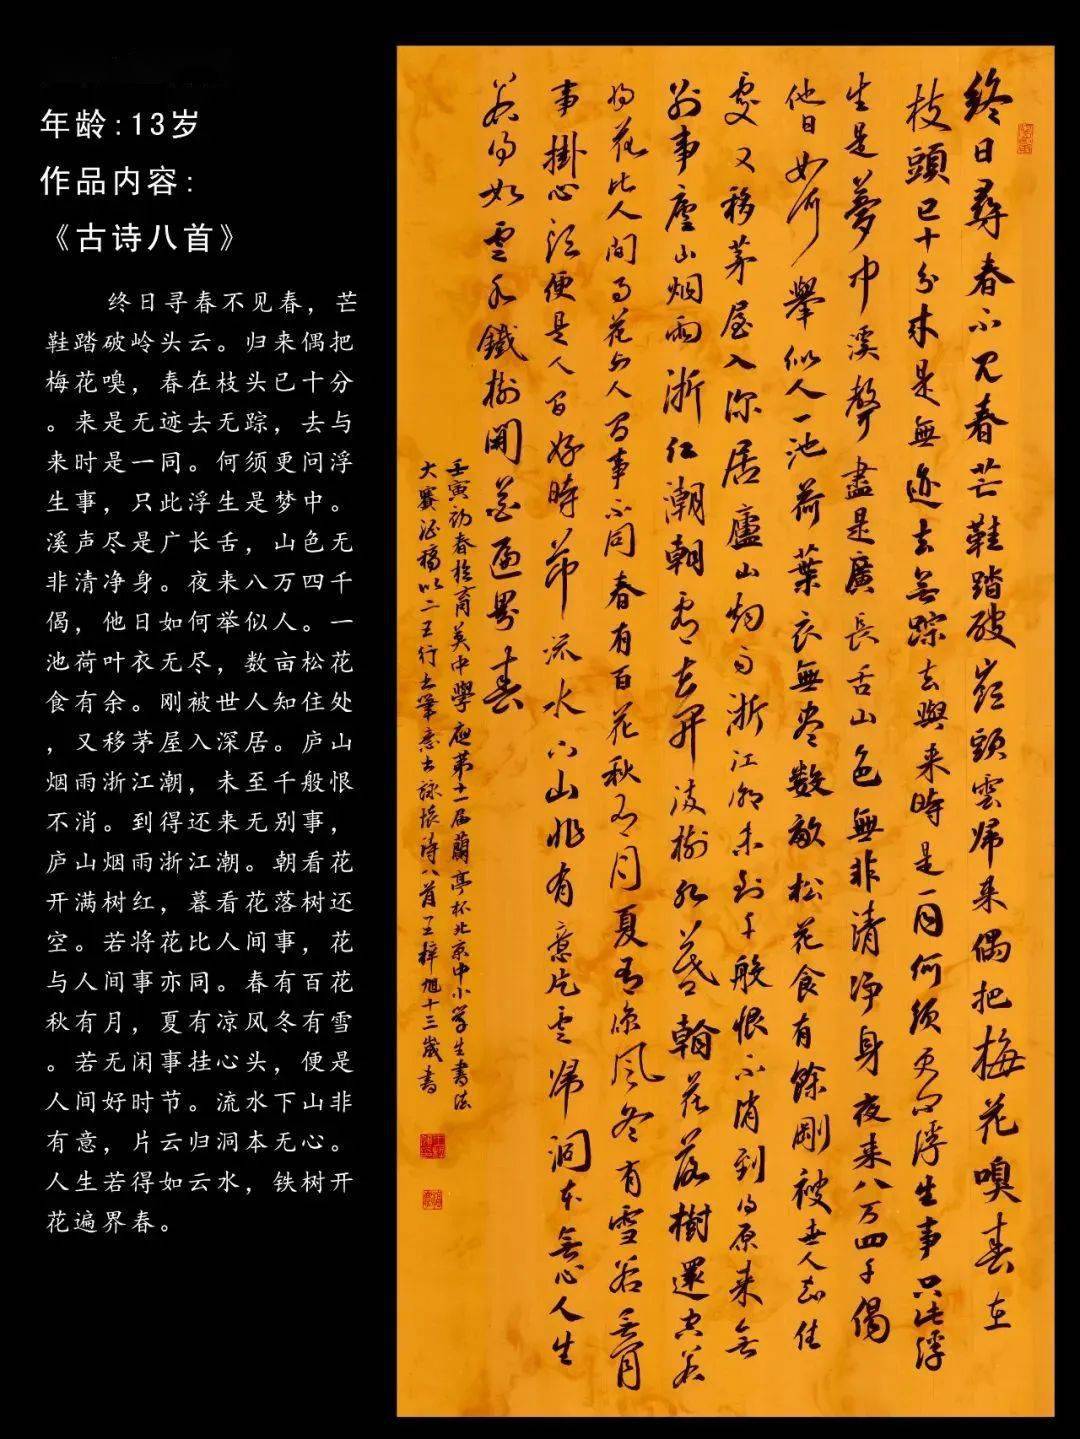 年龄:13岁
作品内容:
《古诗八首》
终日寻春不见春，芒
鞋踏破岭头云。归来偶把
梅花嗅，春在枝头已十分
。来是无迹去无踪，去与
来时是一同。何须更问浮
生事，只此浮生是梦中。
溪声尽是广长舌，山色无
非清净身。夜来八万四千
偈，他日如何举似人。一
池荷叶衣无尽，数亩松花
食有余。刚被世人知住处
，又移茅屋入深居。庐山
烟雨浙江潮，未至千般恨
不消。到得还来无别事，
庐山烟雨浙江潮。朝看花
开满树红，暮看花落树还
空。若将花比人间事，花
与人间事亦同。春有百花
秋有月，夏有凉风冬有雪
。若无闲事挂心头，便是
人间好时节。流水下山非
有意，片云归洞本无心。
人生若得如云水，铁树开
花遍界春。
終日尋春不見春芒鞋踏破嶺頭雲歸来偶把梅花嗅春在
枝頭已十分来是無迹去無踪去與来時是一同何須更问浮生事只此浮
生是夢中溪聲盡是廣長舌山色無非清净身夜来八万四千偈
他日如何舉似人一池荷葉衣無盡數畝松花食有餘剛被世人知住
處又移茅屋入深居廬山烟雨浙江潮未到千般恨不消到得原来無
别事廬山烟雨浙江潮朝看花開满樹红暮看花落樹還空若
将花比人間事花与人間事不同春有百花秋有月夏有凉風冬有雪若無閑
事掛心頭便是人間好時節流水下山非有意片雲歸洞本無心人生
若得如雲水鐵樹開花遍界春
壬寅初春於育英中學應第十一届蘭亭杯北京中小學生書法
大賽徵稿以二王行書筆意書詠懷诗八首王梓旭十三歲書